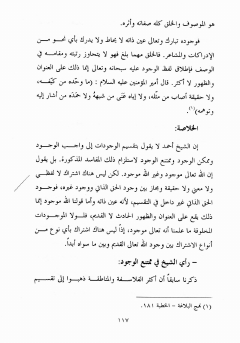 هو الموصوف والخلق كله صفاته وأثره.
فوجوده تبارك وتعالى عين ذاته لا يحاط ولا يدرك بأي نحو من
الإدراكات والمشاعر. فالخلق مهما بلغ فهو لا يتجاوز رتبته ومقامه في
الوصف فإطلاق لفظ الوجود عليه سبحانه وتعالى إنما ذلك على العنوان
والظهور لا أكثر. قال أمير المؤمنين عليه السلام : (ما وحّده من كيّفه،
ولا حقيقته أصاب من مثّله، ولا إياه عنى من شبهه ولا صمده من أشار إليه
وتوهمه)(١).
الخلاصة:
إن الشيخ أحمد لا يقول بتقسيم الوجودات إلى واجب الوجود
وممكن الوجود وممتنع الوجود لاستلزام ذلك المفاسد المذكورة. بل يقول
إن الله تعالى موجود وغير الله موجود. لكن ليس هناك اشتراك لا لفظي
ولا معنوي ولا حقيقة ومجاز بين وجود الحق الذاتي ووجود غيره، فوجود
الحق الذاتي غير داخل في التقسيم، لأنه عين ذاته وأما قولنا الله موجود إنما
ذلك يقع على العنوان والظهور الحادث لا القديم، فلا الموجودات
المخلوقة ما علمنا أنه تعالى موجود، إذاً ليس هناك اشتراك بأي نوع من
أنواع الاشتراك بين وجود الله تعالى القديم وبين ما سواه أبداً.
– رأي الشيخ في ممتنع الوجود:
ذكرنا سابقاً أن أكثر الفلاسفة والمناطقة ذهبوا إلى تقسيم
(١) نهج البلاغة - الخطبة ١٨٦.
١١٧